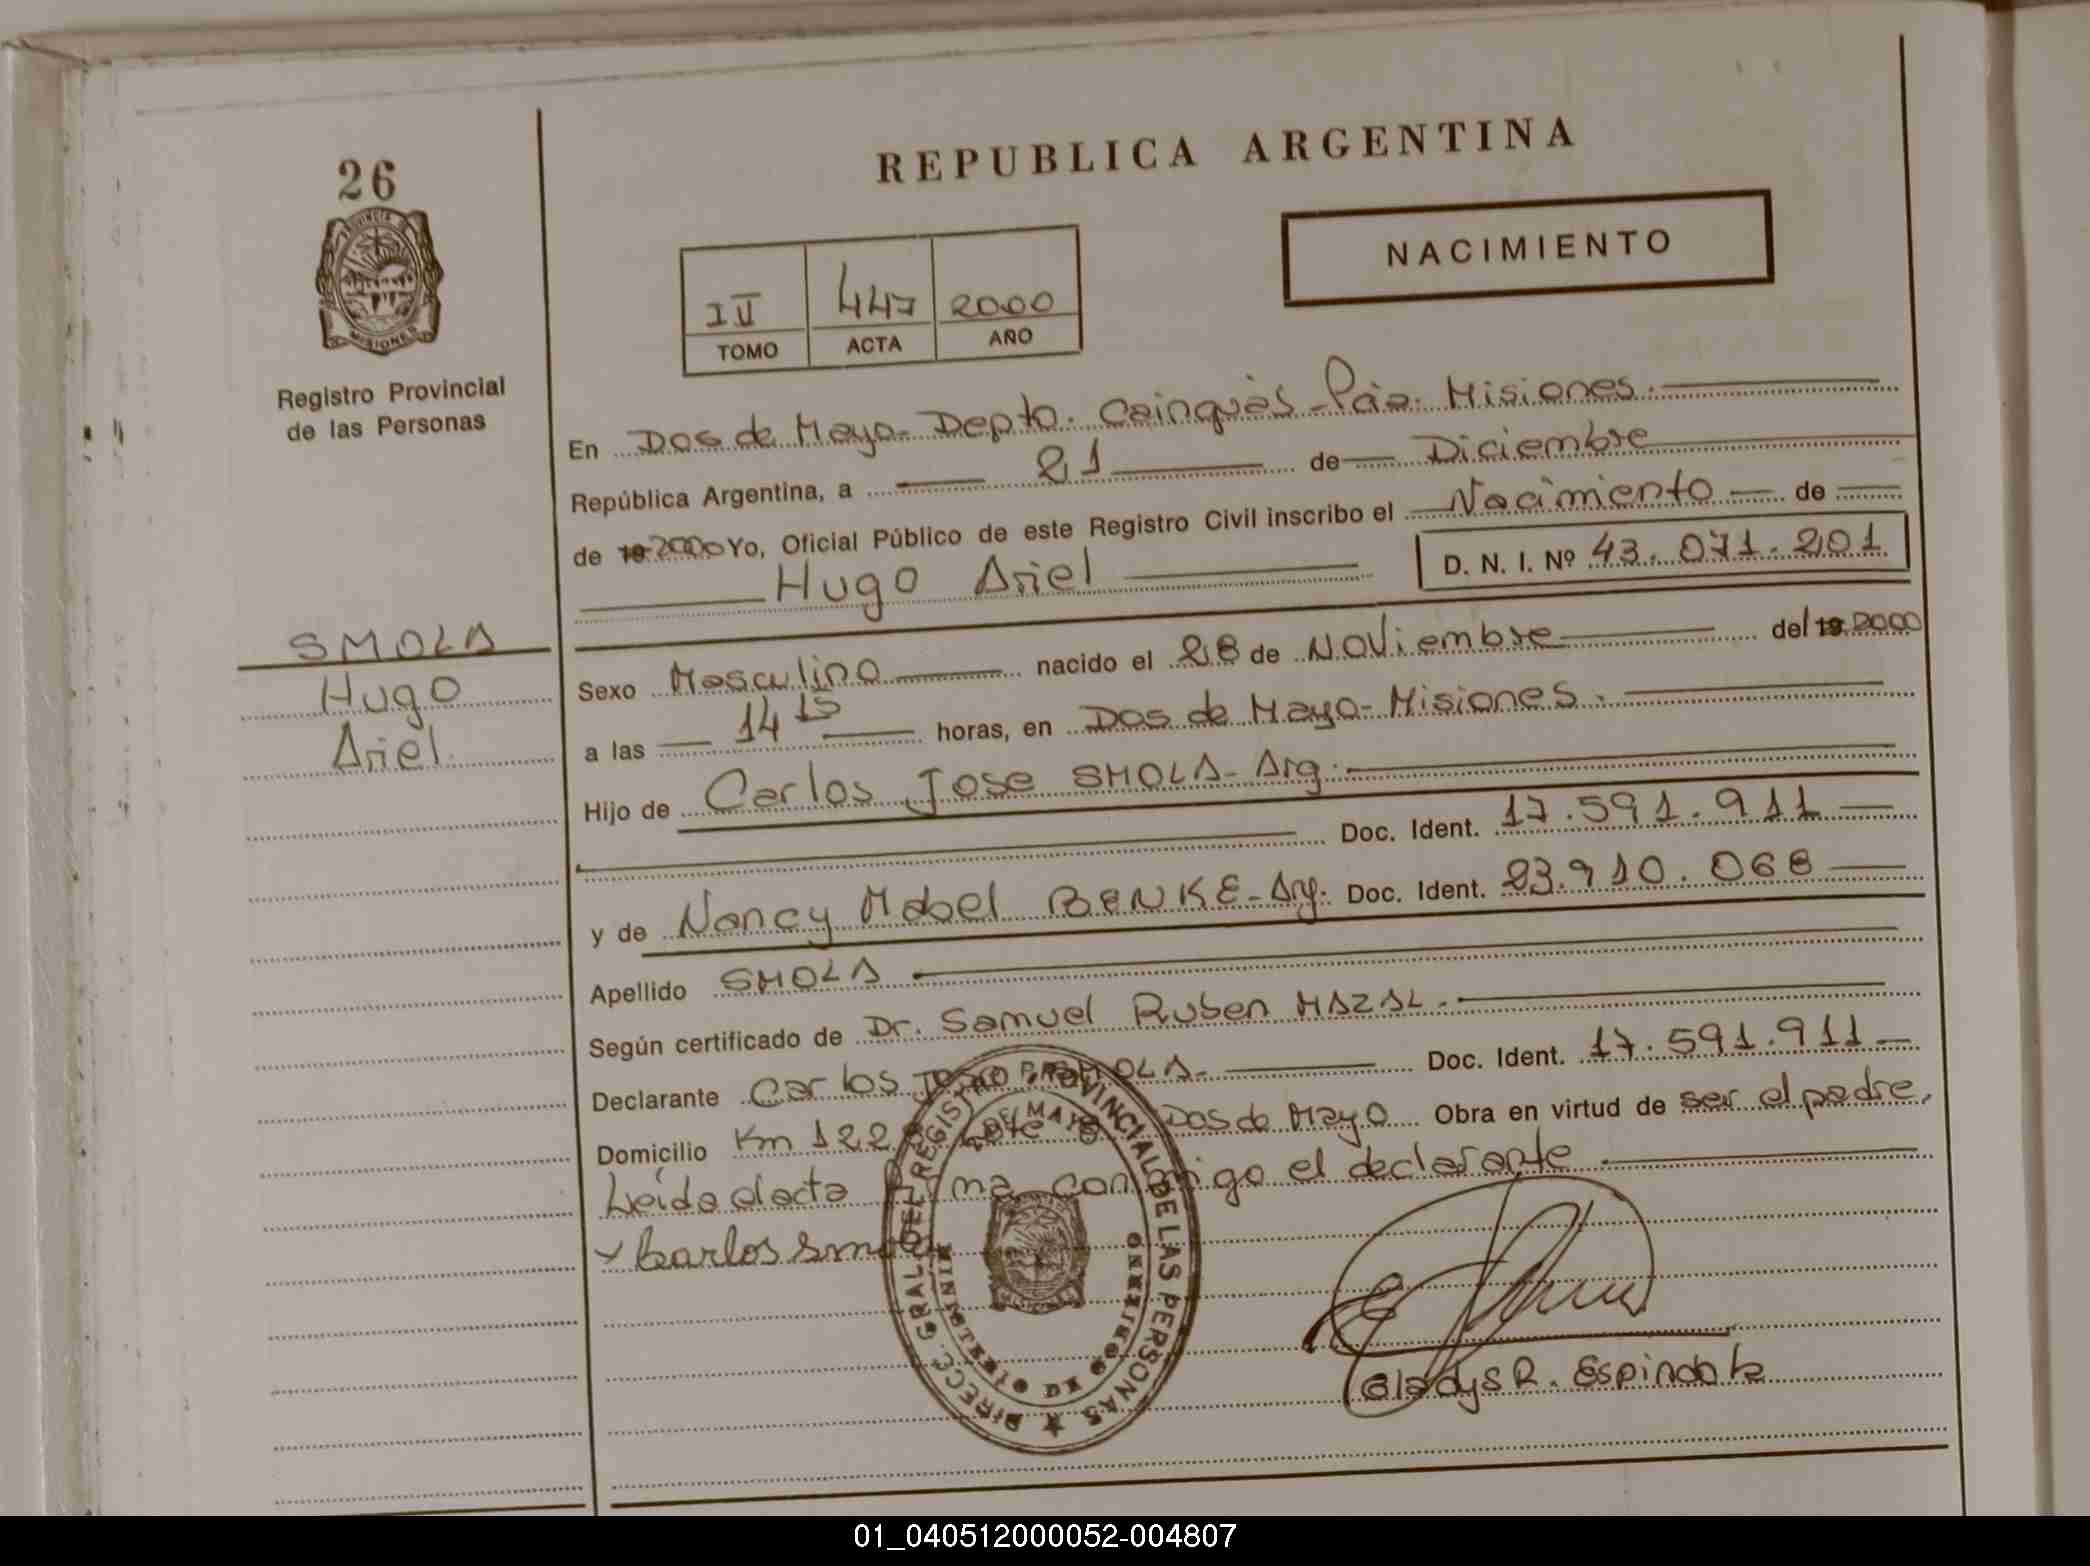 26
PROVINCIA DE
MISIONES
Registro Provincial
de las Personas
SMOLA
Hugo
Ariel.
REPUBLICA ARGENTINA
NACIMIENTO
IV 447 2000
TOMO ACTA AÑO
En Dos de Mayo- Depto. Cainguàs - Pcia. Misiones.
República Argentina, a 21 de Diciembre
de 19 2000 Yo, Oficial Público de este Registro Civil inscribo el Nacimiento de
Hugo Ariel D. N. I. Nº 43.071.201
Sexo Masculino nacido el 28 de Noviembre del 19 2000
a las 14 15 horas, en Dos de Mayo- Misiones.
Hijo de Carlos Jose SMOLA- Arg.
Doc. Ident. 17.591.911
y de Nancy Mabel BENKE- Arg. Doc. Ident. 23.910.068
Apellido SMOLA
Según certificado de Dr. Samuel Ruben MAZAL.
Declarante Carlos Jose SMOLA- Doc. Ident. 17.591.911
Domicilio Km 122 Lote 8 Dos de Mayo Obra en virtud de ser el padre,
Leida el acta firma conmigo el declarante
Carlos Smola
DIRECC. GRAL. DEL REGISTRO PROVINCIAL DE LAS PERSONAS
DOS DE MAYO
MINISTERIO DE GOBIERNO
Gladys R. Espindola
01_040512000052-004807